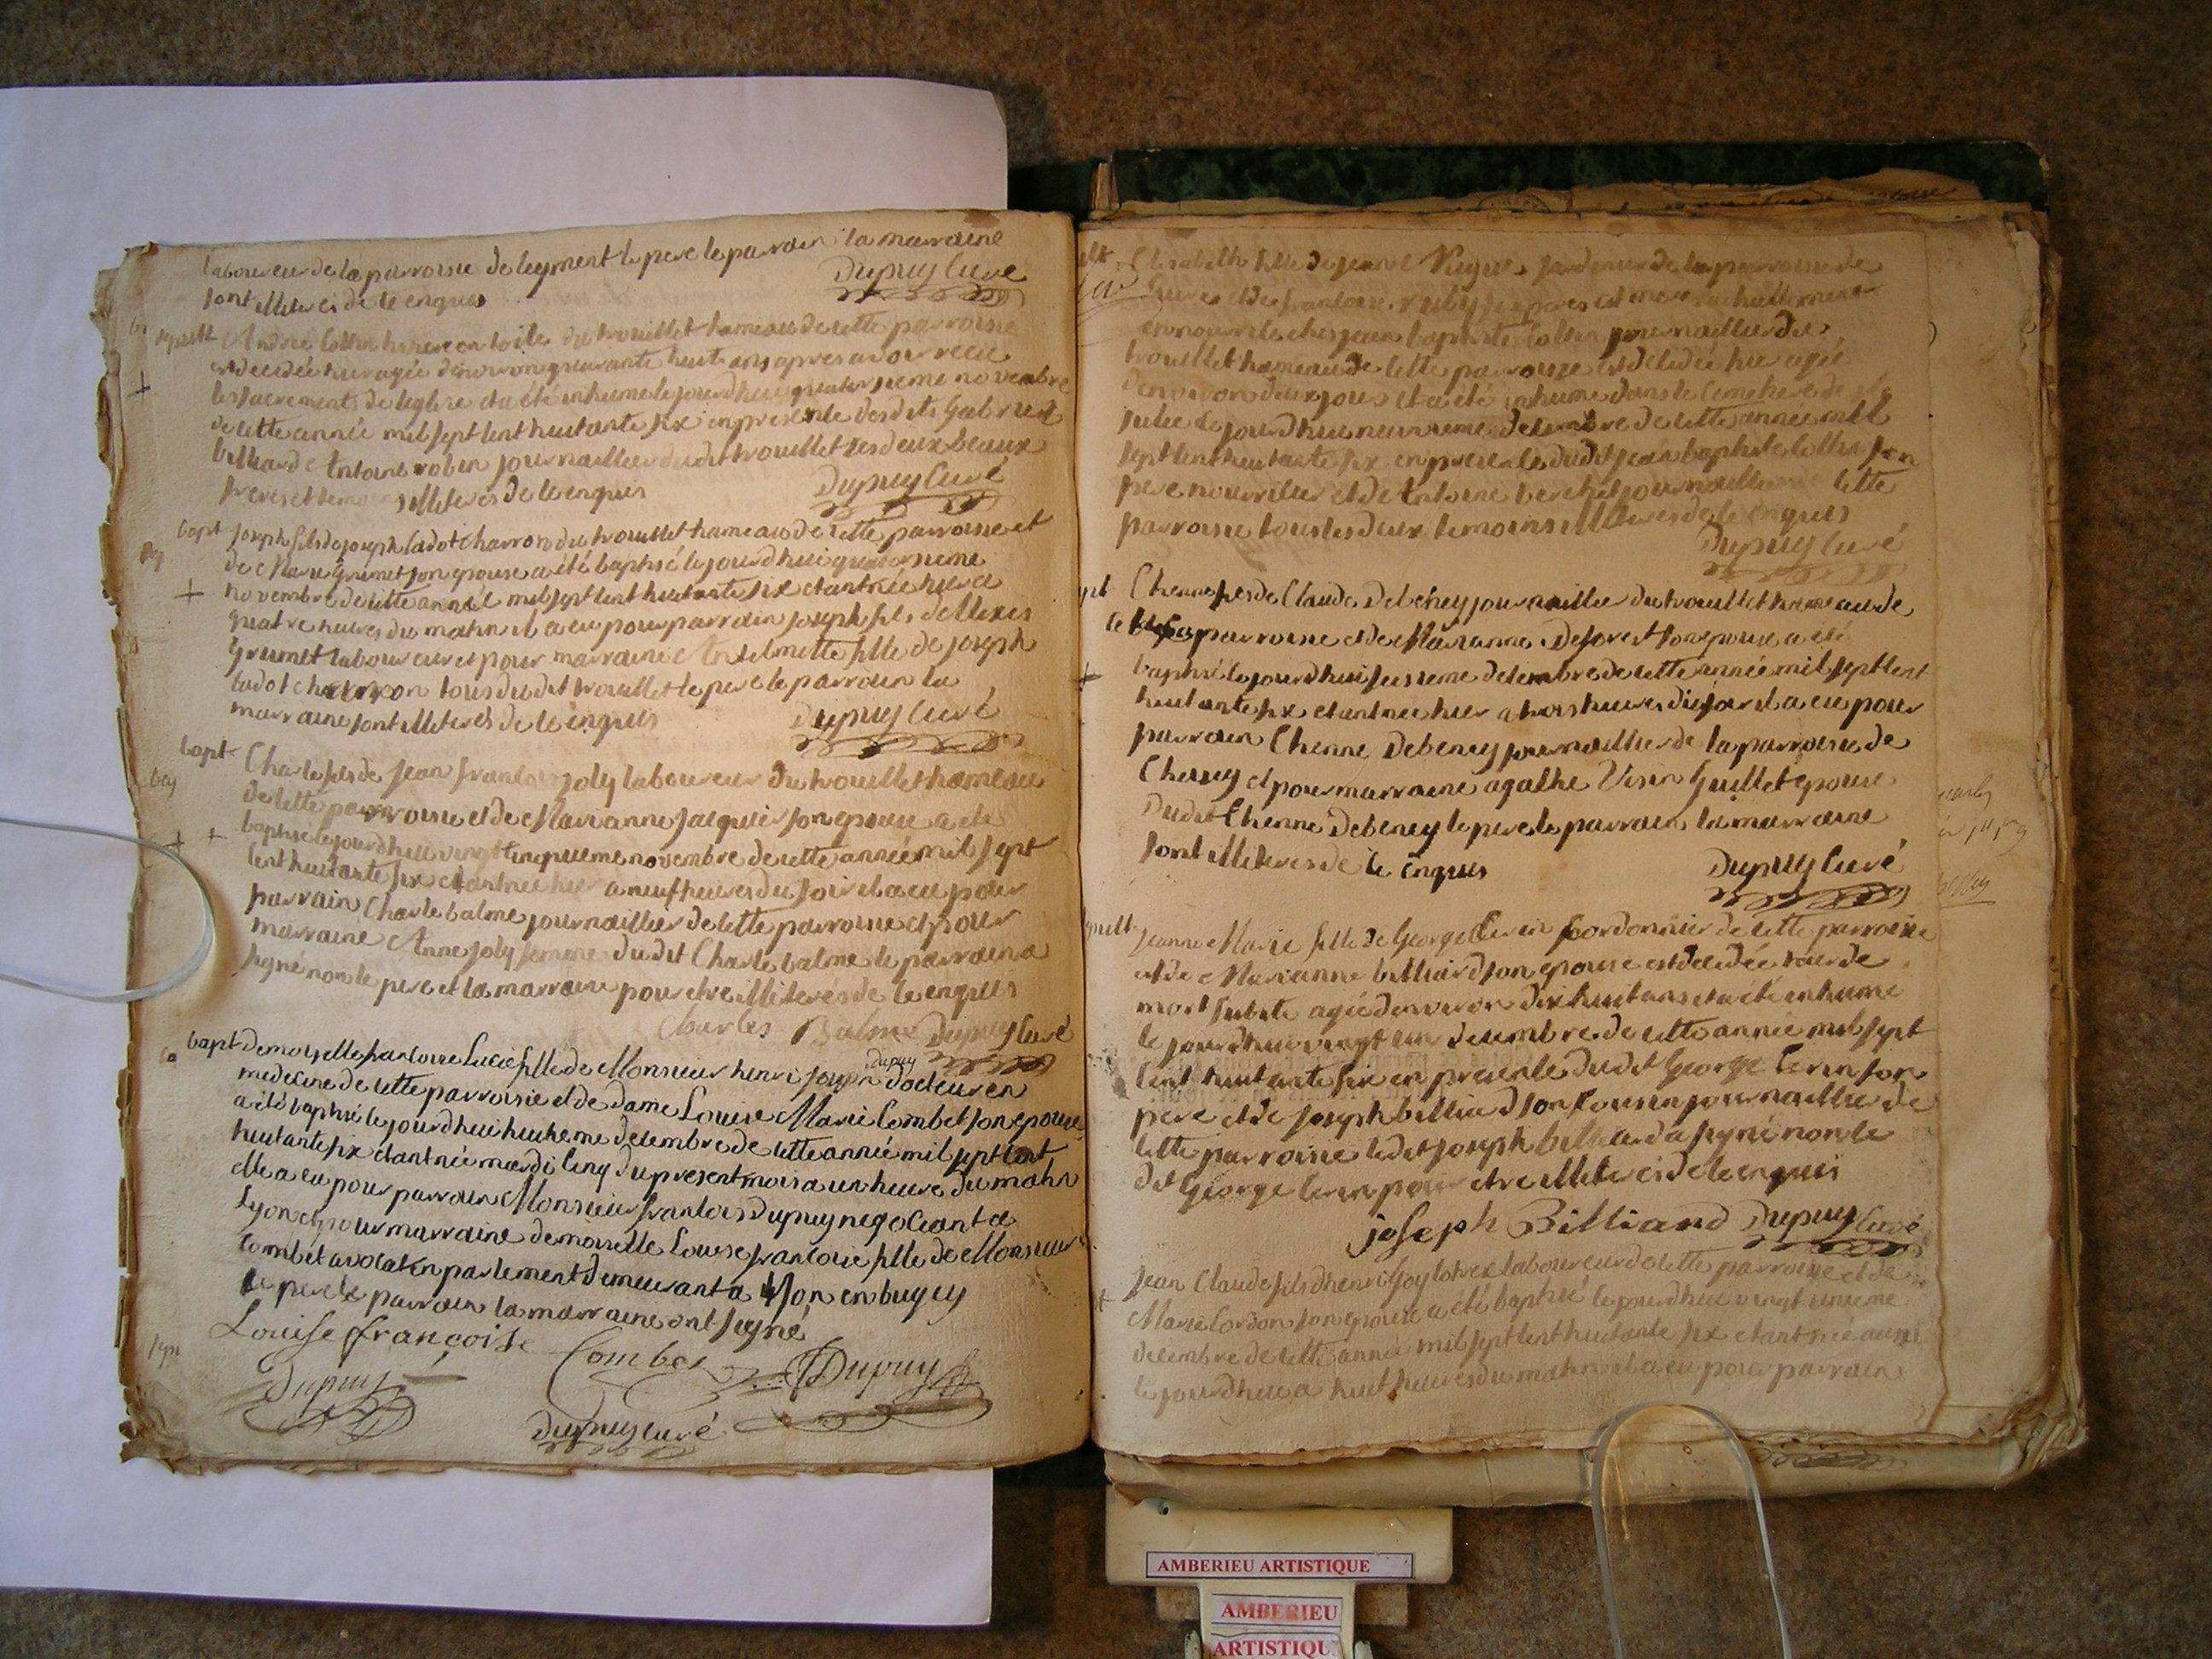 laboureur de la parroisse de leyment le pere le parrain la marraine
sont illiterés de ce enquis
Dupuy curé
sepult
en toile du trouillet hameau de cette parroisse
est decedée hier agée denviron quarante huit ans apres avoir recu
les sacrements de leglise et a été inhumé le jourdhui quatorsieme novembre
de cette année mil sept cent huitante six en presence desdits Gabriel
billiard et Antoine robin journaillier dudit trouillet ses deux beaux
freres et temoins illiterés de ce enquis
Dupuy curé
bapt
Joseph fils de joseph cadot charron du trouillet hameau de cette parroisse et
de Marie Grumet son epouse a été baptisé le jourdhui quatorsieme
novembre de cette année mil sept cent huitante six etant née hier a
quatre heures du matin il a eu pour parrain joseph fils dAlexis
Grumet laboureur et pour marraine Anthelmette fille de joseph
cadot charron tous dudit trouillet le pere le parrain la
marraine sont illiterés de ce enquis
Dupuy curé
bapt
Charle fils de jean francois joly laboureur du trouillet hameau
de cette parroisse et de Marianne jacquier son epouse a été
baptisé le jourdhui vingt cinquieme novembre de cette année mil sept
cent huitante six etant née hier a neuf heures du soir il a eu pour
parrain Charle balme journaillier de cette parroisse et pour
marraine Anne joly femme dudit Charle balme le parrain a
signé non le pere et la marraine pour etre illiterés de ce enquis
Charles Balme Dupuy curé
bapt
demoiselle francoise Lucie fille de Monsieur henri joseph dupuy docteur en
medecine de cette parroisse et de dame Louise Marie Combet son epouse
a été baptisé le jourdhui huitieme decembre de cette année mil sept cent
huitante six etant née mardi cinq du present mois a un heure du matin
elle a eu pour parrain Monsieur francois Dupuy negociant a
Lyon et pour marraine demoiselle Louise francoise fille de Monsieur
Combet avocat en parlement demeurant a Lyon en bugey
le pere le parrain la marraine ont signé
Louise françoise Combet
Dupuy
Dupuy
Dupuy curé
Elisabeth fille de jean
de la parroisse de
en nourrice chez jean baptiste collin journaillier du
trouillet hameau de cette parroisse est decedée hier agée
denviron deux jours et a été inhumé dans le cimetiere de
le jourdhui neuvieme decembre de cette année mil
sept cent huitante six en presence dudit jean baptiste collin son
pere nourricier et de Antoine berchet journaillier de cette
parroisse tous les deux temoins illiterés de ce enquis
Dupuy curé
Etienne fils de Claude Debeney journaillier du trouillet hameau de
parroisse et de Marianne Deforest son epouse a été
baptisé le jourdhui seisieme decembre de cette année mil sept cent
huitante six etant née hier a trois heures du soir il a eu pour
parrain Etienne Debeney journaillier de la parroisse de
et pour marraine agathe Visin Guillet epouse
dudit Etienne Debeney le pere le parrain la marraine
sont illiterés de ce enquis
Dupuy curé
Jeanne Marie fille de George cordonnier de cette parroisse
et de Marianne billiard son epouse est decedée hier de
mort subite agée denviron dix huit ans et a été inhumé
le jourdhui vingt un decembre de cette année mil sept
cent huitante six en presence dudit George son
pere et de joseph billiard son cousin journaillier de
cette parroisse ledit joseph billiard a signé non le
dit George pour etre illiterés de ce enquis
joseph Billiard Dupuy curé
Jean Claude fils dhenri laboureur de cette parroisse et de
Marie Cordon son epouse a été baptisé le jourdhui vingt unieme
decembre de cette année mil sept cent huitante six etant née aussi
le jourdhui a huit heures du matin il a eu pour parrain
AMBERIEU ARTISTIQUE
AMBERIEU
ARTISTIQU